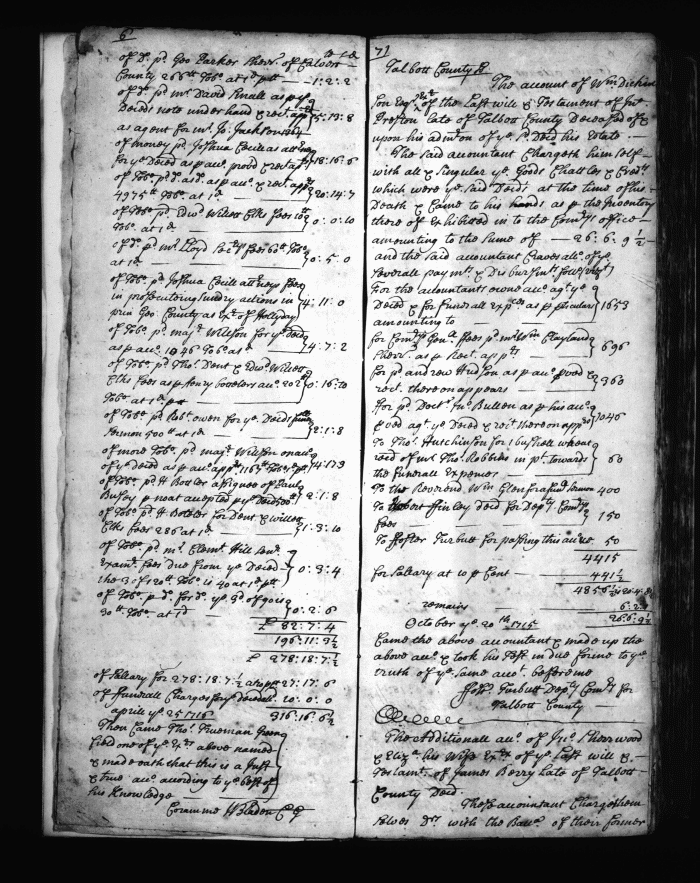 6
of Do. pd. Geo Parker Sherr. of Calvert
County 266 lb Tobo. at 1d p lb — 1:2:2
of Do. pd. mr. David Small as p sd
Deceds note under hand & rect. app 5:13:8
as agent for mr. Jo. Jackson
of money pd. Joshua Cecill as attney
for ye Deced as p acco. proved & rect app 18:16:6
of Tobo. pd. as p acco. & rect app
4975 lb Tobo. at 1d — 20:14:7
of Tobo. pd. Edwd Willett Clks fees 10
Tobo. at 1d — 0:0:10
of Do. pd. mr. Lloyd Secrys fees 60 lb Tobo.
at 1d — 0:5:0
of Tobo. pd. Joshua Cecill attneys fees
in prosecuteing sundry actions in 4:11:0
prin Geo: County as Exr. of Hollyday
of Tobo. pd. majr Willson for ye Deceds
as p acco. 1046 Tobo. as — 4:7:2
of Tobo. pd. Tho. Dent & Edwd Willett
Clks fees as p Henry Botelers acco. 202 0:16:10
Tobo. at 1d p
of Tobo. pd. Robt. owen for ye Deceds fun
Sermon 500 lb at 1d — 2:1:8
of more Tobo. pd. majr. Willson on acco
of ye deced as p acco app 4:17:3
of Tobo. pd. H Botler assignee of Paul
Busey p noat acepted p ye Deced 500 lb 2:1:8
of Tobo. pd. H. Boteler for Dent & willett
Clks fees 286 at 1d — 1:3:10
of Tobo. pd. mr. Clemt. Hill Senr.
Examrs. fees Due from ye Deced 0:3:4
the 3 of 120 lb Tobo. is 40 at 1d p lb
of Tobo. pd. for Do. ye 3d of 90 is
30 lb Tobo. at 1d — 0:2:6
£ 82:7:4
196:11:3½
£ 278:18:7½
of Sallary for 278:18:7½ at 10 p ct 27:17:6
of funerall Charges for ye deceased 10:0:0
april ye 25 1716 316:16:6½
Then Came Tho. Trueman Green
field one of ye Exrs above named
& made oath that this is a Just
& true acco according to ye best of
his Knowledge
Coram me W Bladen C G
71
Talbott County ss
The account of Wm Dicken
son Exqr. of the Last will & Testament of Jno.
Preston late of Talbott County Deceased
upon his admon of ye sd. Deced his Estate
The said accountant Chargeth himself
with all & Singular ye Goods Chattles & Credts
which were ye said Deceds at the time of his
Death & Came to his hands as p the Inventory
there of Exhibited in to the Comrys office
amounting to the Sume of — 26:6:9½
and the said accountant Craves allo. of ye
severall paymts. & Disbursmts. following vizt
For the accountants owne acco. agt. ye
Deced & for funerall Expces as p perticulars 1653
amounting to
for Comrys Genls. ffees pd. mr. Wm Clayland
Sherr. as p Rect. app — 696
for pd. andrew Hudson as p acco pved &
rect. thereon appears — 360
For pd. Doctr. Jno Bullen as p his acco
pved agt. ye Deced & rect there on app 1046
To Tho. Hutchinson for 1 bushell wheat
recd of mr. Tho. Robbins in pt. towards 60
the funerall Expences
To the Reverend Wm Glen for a fun sermon 400
To Robert Finley Deced for Depty Comrys
fees — 150
To Foster Turbutt for passing this acco. 50
4415
for Sallary at 10 p Cent — 441½
4856½ is 20:4:8
remains 6:2:1
October ye 20th 1715 26:6:9½
Came the above accountant & made up the
above acco & took his Oath in due forme to ye
truth of ye same acct. before me
Fostr Turbutt Depty Comry for
Talbott County —
The Additionall acco of Jno Sherwood
& Eliza. his Wife Exrx of ye Last will &
Testamt. of James Berry Late of Talbott
County Deced.
These accountant Charge them
selves Dr. with the Ballce of their former